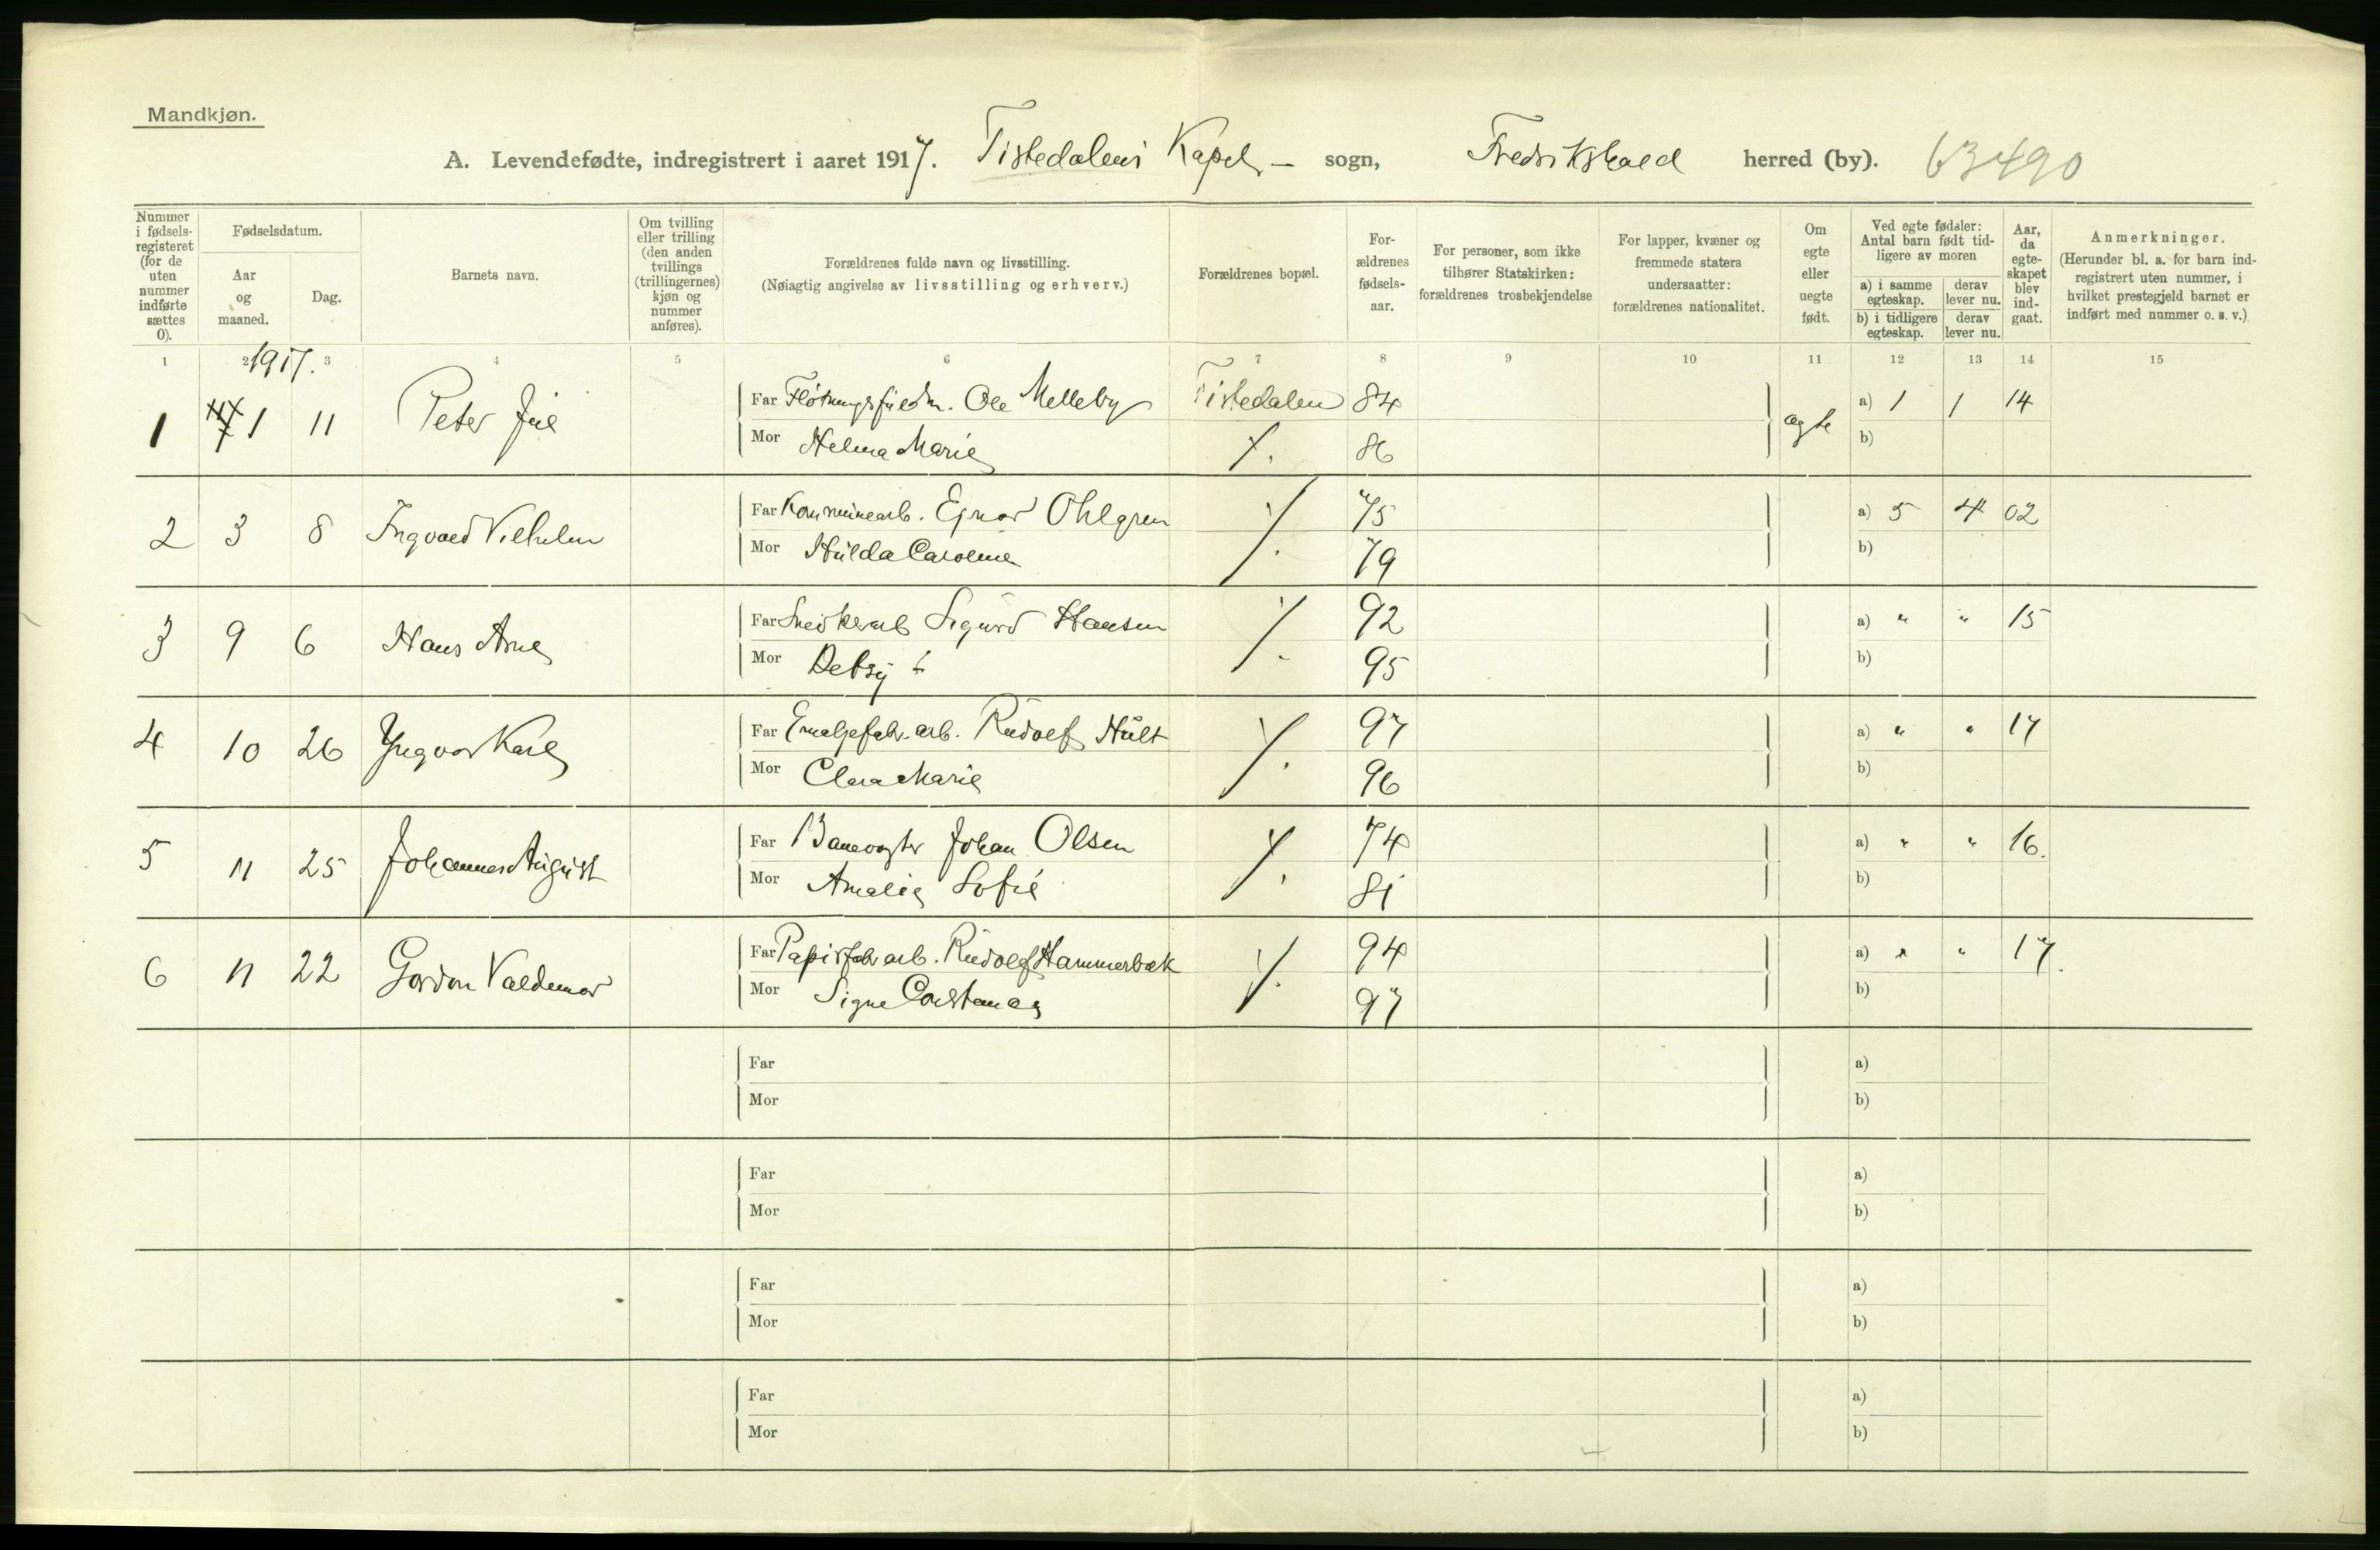 Mandkjøn.
A. Levendefødte, indregistrert i aaret 1917. Tistedalens Kapel - sogn, Fredrikshald herred (by). 63490
Nummer i fødselsregisteret (for de uten nummer indførte sættes 0).
Fødselsdatum.
Aar og maaned.
Dag.
Barnets navn.
Om tvilling eller trilling (den anden tvillings (trillingernes) kjøn og nummer anføres).
Forældrenes fulde navn og livsstilling.
(Nøiagtig angivelse av livsstilling og erhverv.)
Forældrenes bopæl.
Forældrenes fødselsaar.
For personer, som ikke tilhører Statskirken: forældrenes trosbekjendelse
For lapper, kvæner og fremmede staters undersaatter: forældrenes nationalitet.
Om egte eller uegte født.
Ved egte fødsler: Antal barn født tidligere av moren
a) i samme egteskap. derav lever nu.
b) i tidligere egteskap. derav lever nu.
Aar, da egteskapet blev indgaat.
Anmerkninger.
(Herunder bl. a. for barn indregistrert uten nummer, i hvilket prestegjeld barnet er indført med nummer o. s. v.)
1 2 3 4 5 6 7 8 9 10 11 12 13 14 15
1917.
1 1 11 Peter Juel Far Ole Melleby Tistedalen 84 egte a) 1 1 14
Mor Helma Marie 86 b)
2 3 8 Ingvald Vilhelm Far Kommunearb. Ejnar Ohlgren 75 a) 5 4 02
Mor Hulda Caroline 79 b)
3 9 6 Hans Arne Far Snedkerarb Sigurd Hansen 92 a) " " 15
Mor Betsy 95 b)
4 10 26 Yngvar Karl Far Emaljefabr. arb. Rudolf Hult 97 a) " " 17
Mor Clara Marie 96 b)
5 11 25 Johannes August Far Banevogter Johan Olsen 74 a) " " 16.
Mor Amalie Sofie 81 b)
6 11 22 Gordon Valdemar Far Papirfabr arb. Rudolf Hammerbæk 94 a) " " 17.
Mor Signe Constance 97 b)
Far a)
Mor b)
Far a)
Mor b)
Far a)
Mor b)
Far a)
Mor b)